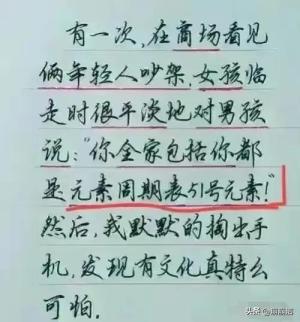 有一次,在商场看见
俩年轻人吵架,女孩临
走时很平淡地对男孩
说:"你全家包括你都
是元素周期表51号元素!"
然后,我默默的掏出手
机,发现有文化真特么
可怕.
头条